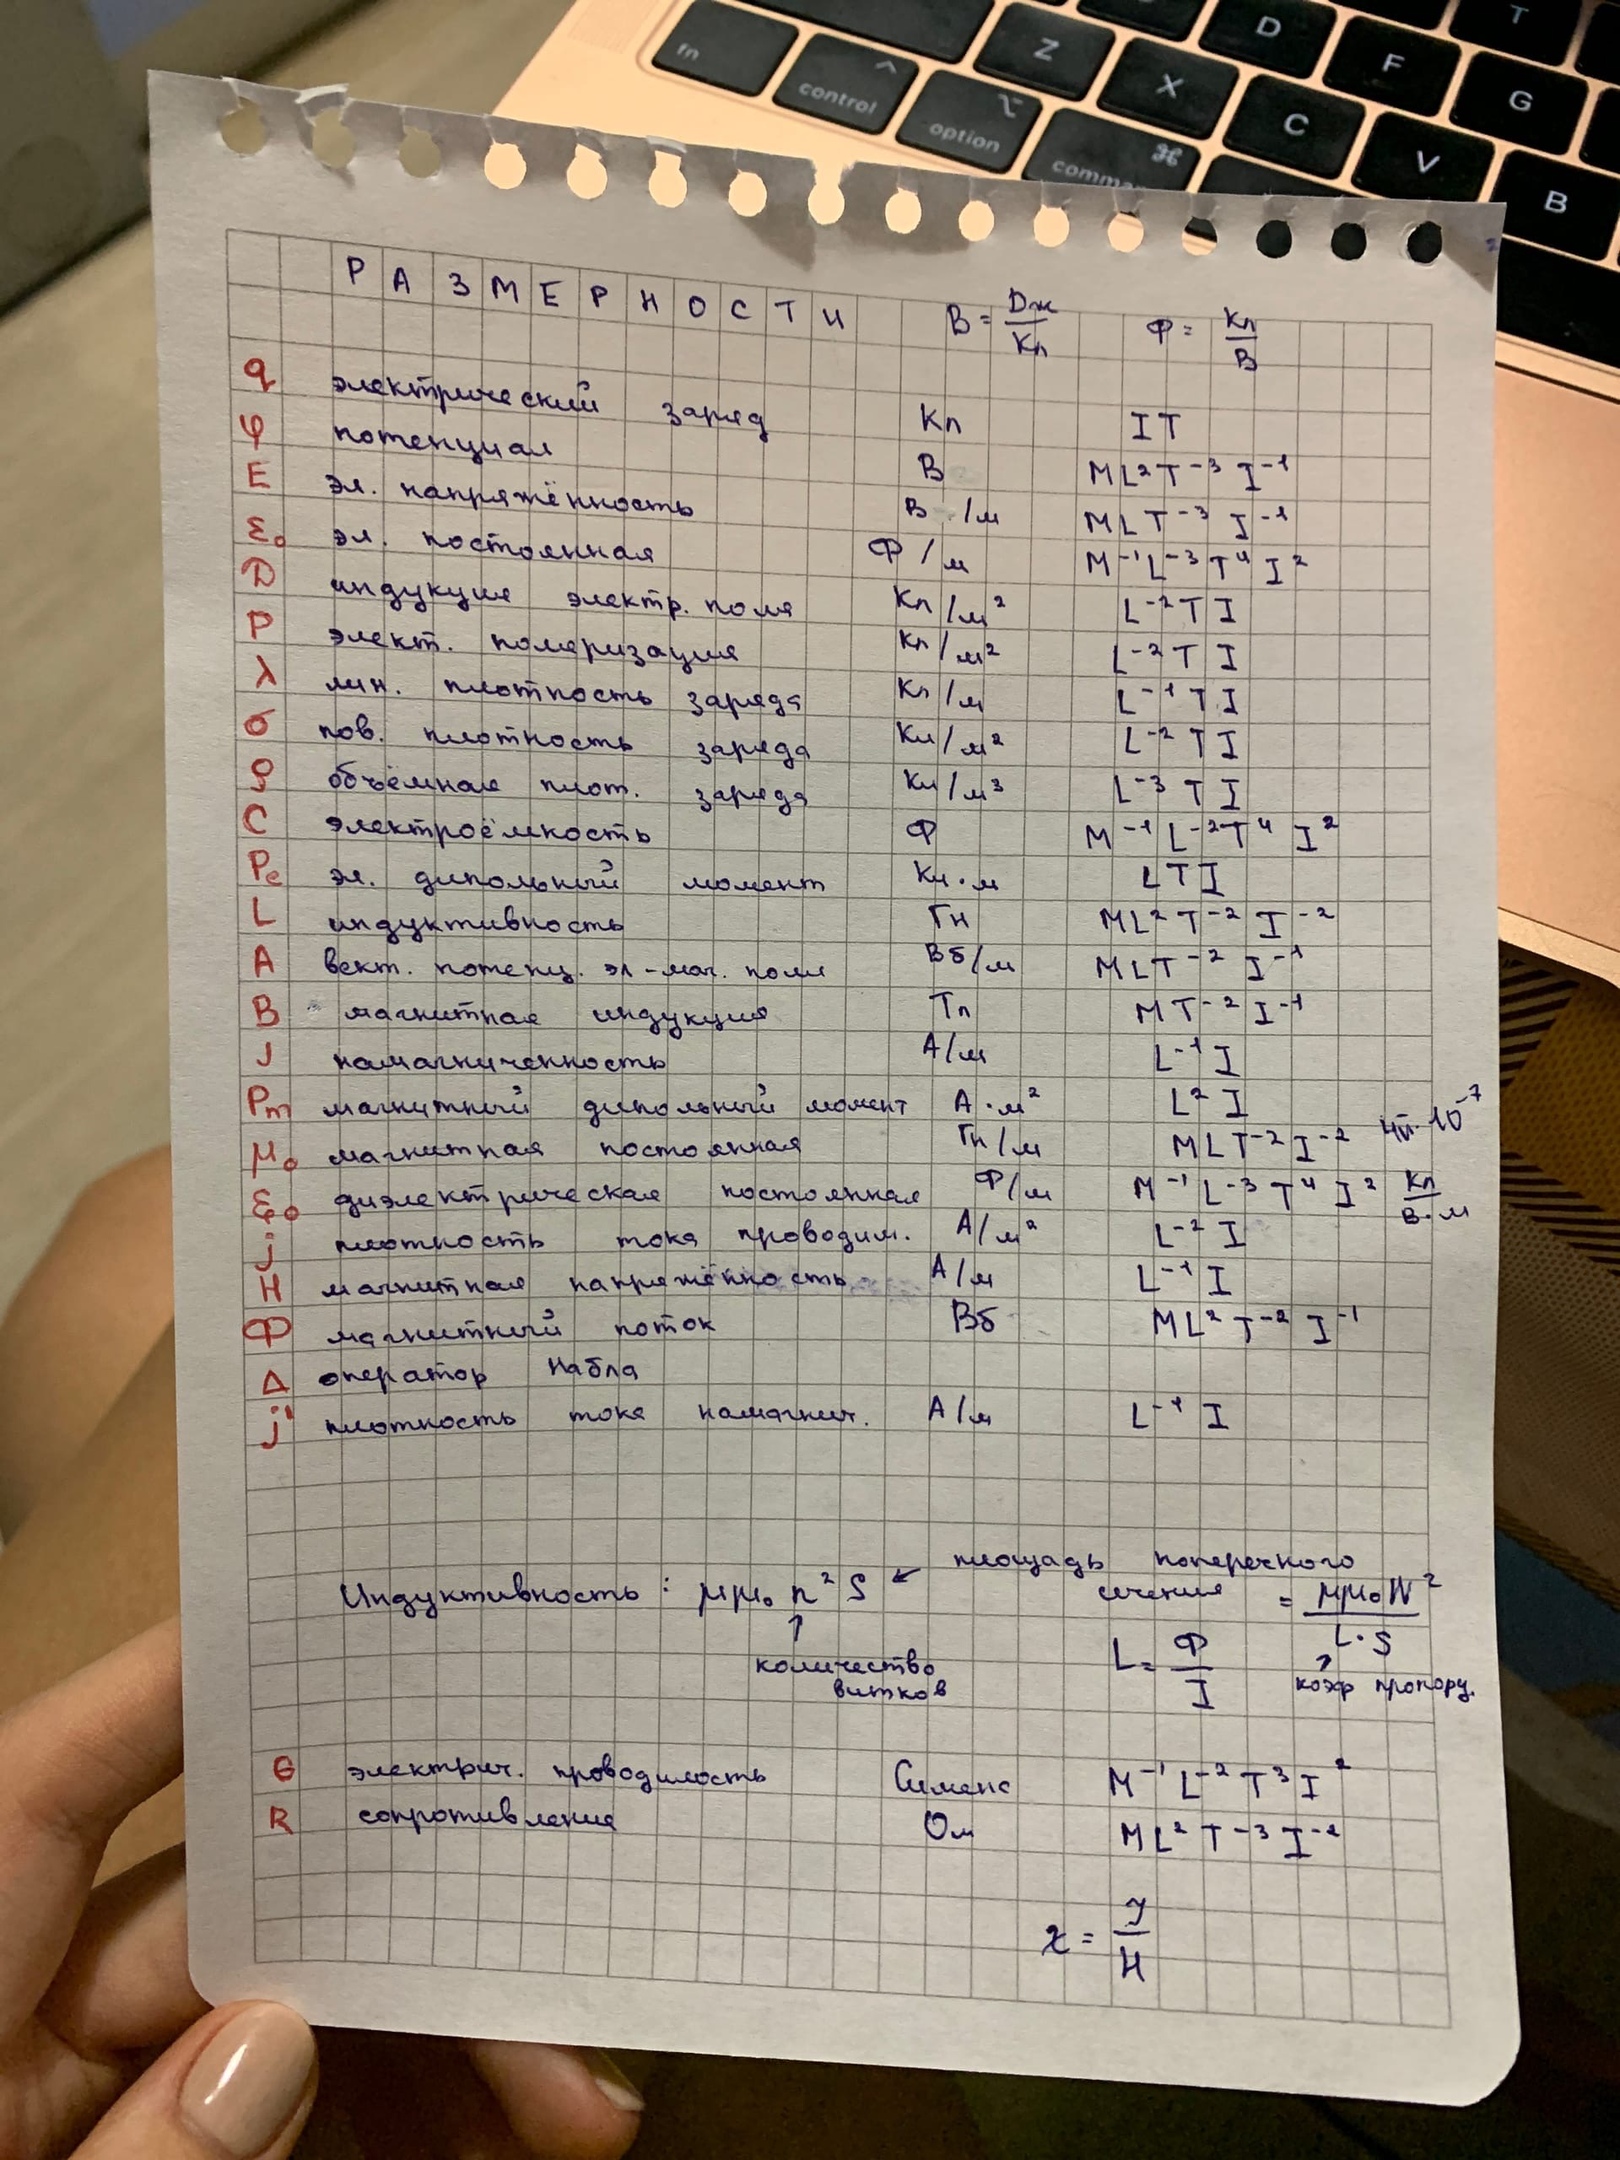 fn control option command Z X C V B D F G T
РАЗМЕРНОСТИ B = Дж/Кл Ф = Кл/В
q электрический заряд Кл IT
φ потенциал В ML²T⁻³I⁻¹
E эл. напряжённость В/м MLT⁻³I⁻¹
ε₀ эл. постоянная Ф/м M⁻¹L⁻³T⁴I²
D индукция электр. поля Кл/м² L⁻²TI
P элект. поляризация Кл/м² L⁻²TI
λ лин. плотность заряда Кл/м L⁻¹TI
σ пов. плотность заряда Кл/м² L⁻²TI
ρ объёмная плот. заряда Кл/м³ L⁻³TI
C электроёмкость Ф M⁻¹L⁻²T⁴I²
Pe эл. дипольный момент Кл·м LTI
L индуктивность Гн ML²T⁻²I⁻²
A вект. потенц. эл-маг. поля Вб/м MLT⁻²I⁻¹
B магнитная индукция Тл MT⁻²I⁻¹
J намагниченность А/м L⁻¹I
Pm магнитный дипольный момент А·м² L²I
μ₀ магнитная постоянная Гн/м MLT⁻²I⁻² 4π·10⁻⁷
ε₀ диэлектрическая постоянная Ф/м M⁻¹L⁻³T⁴I² Кл/В·м
j плотность тока проводим. А/м² L⁻²I
H магнитная напряжённость А/м L⁻¹I
Ф магнитный поток Вб ML²T⁻²I⁻¹
Δ оператор набла
j' плотность тока намагнич. А/м L⁻¹I
Индуктивность: μμ₀n²S ← площадь поперечного сечения = μμ₀N²/L·S
↑ количество витков
L = Ф/I
↗ коэф пропорц.
G электрич. проводимость Сименс M⁻¹L⁻²T³I²
R сопротивление Ом ML²T⁻³I⁻²
χ = J/H